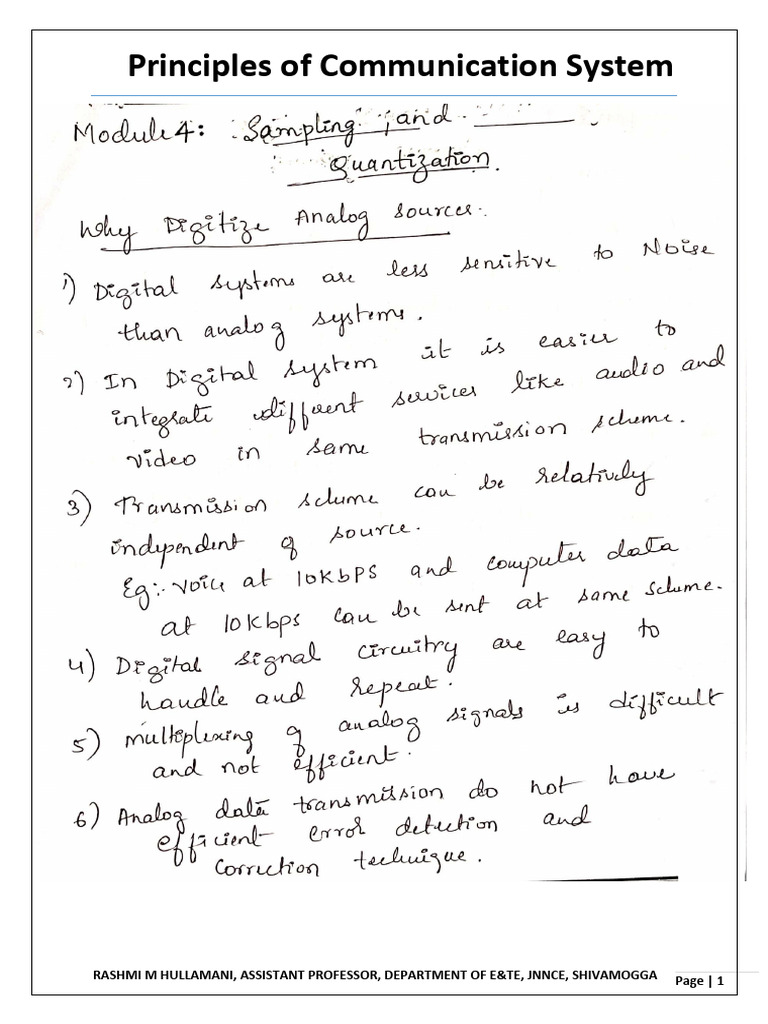 Principles of Communication System
Module 4: Sampling and
Quantization.
Why Digitize Analog sources.
1) Digital systems are less sensitive to Noise
than analog systems.
2) In Digital system it is easier to
integrate different services like audio and
video in same transmission scheme.
3) Transmission scheme can be relatively
independent of source.
Eg:- voice at 10Kbps and computer data
at 10Kbps can be sent at same scheme.
4) Digital signal circuitry are easy to
handle and repeat.
5) Multiplexing of analog signals is difficult
and not efficient.
6) Analog data transmission do not have
efficient error detection and
correction technique.
RASHMI M HULLAMANI, ASSISTANT PROFESSOR, DEPARTMENT OF E&TE, JNNCE, SHIVAMOGGA
Page | 1